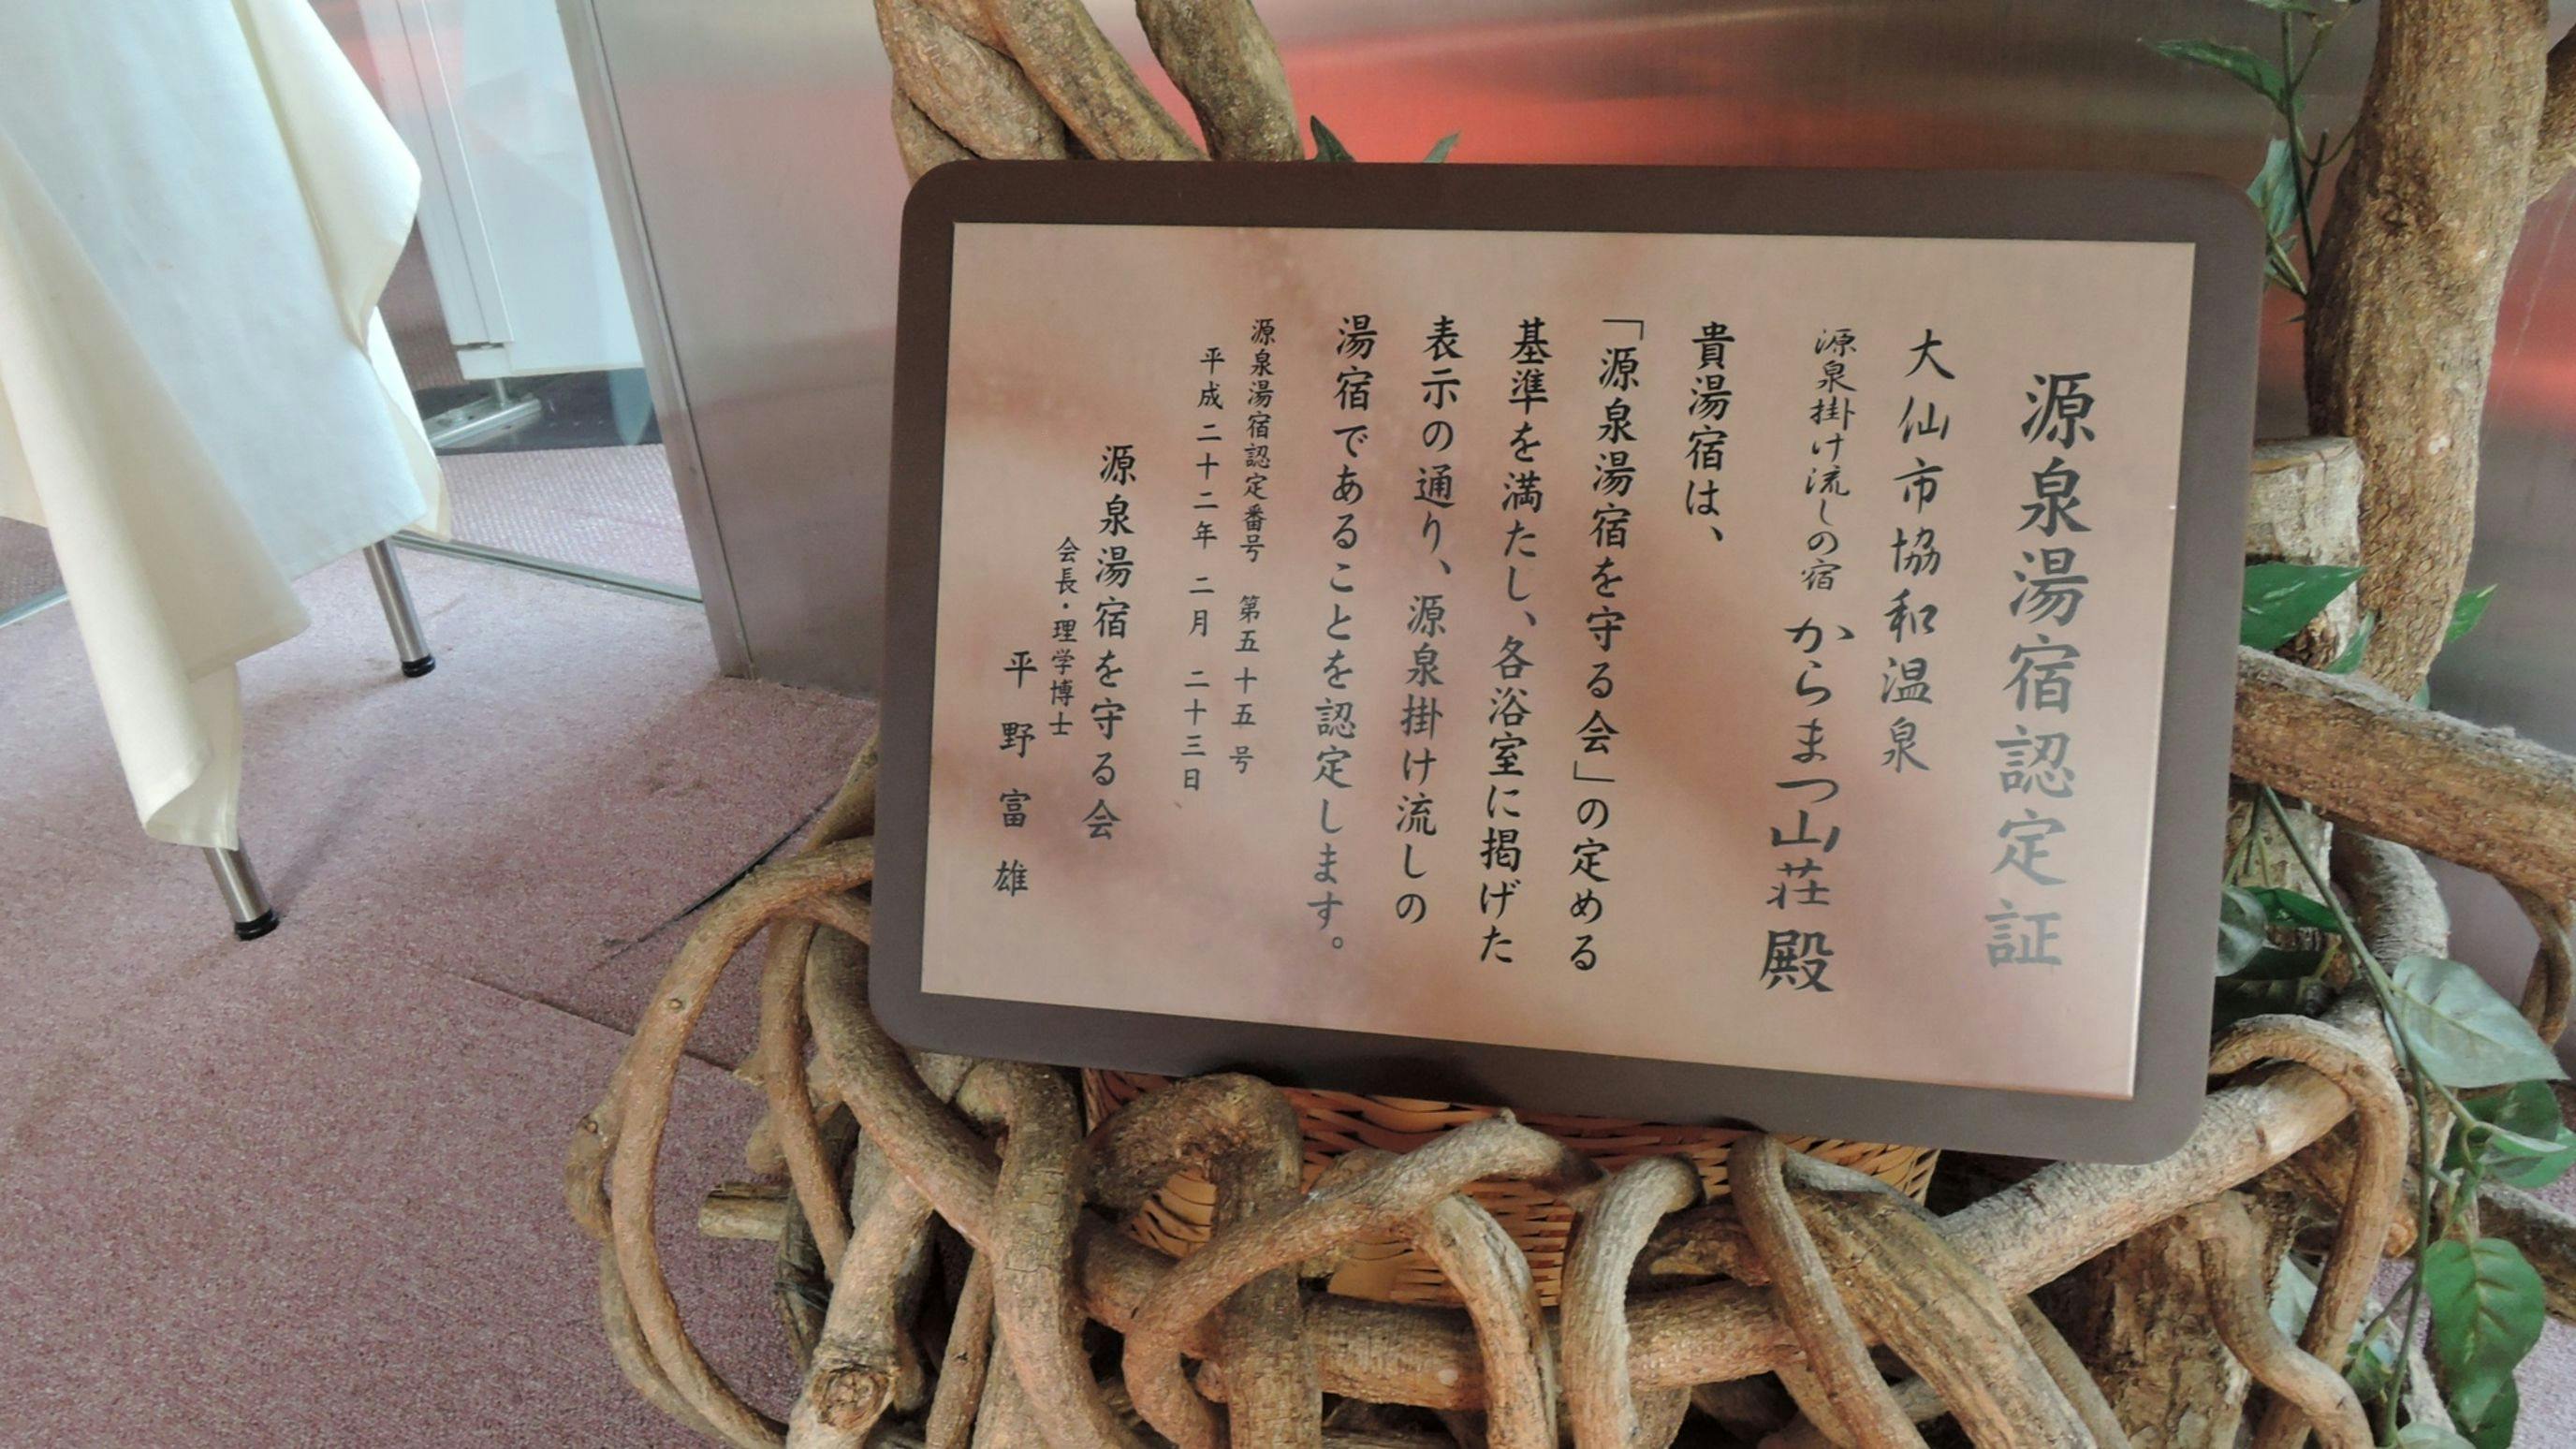 源泉湯宿認定証
大仙市協和温泉
源泉掛け流しの宿 からまつ山荘 殿
貴湯宿は、
「源泉湯宿を守る会」の定める
基準を満たし、各浴室に掲げた
表示の通り、源泉掛け流しの
湯宿であることを認定します。
源泉湯宿認定番号 第五十五号
平成二十二年 二月 二十三日
源泉湯宿を守る会
会長・理学博士
平野富雄